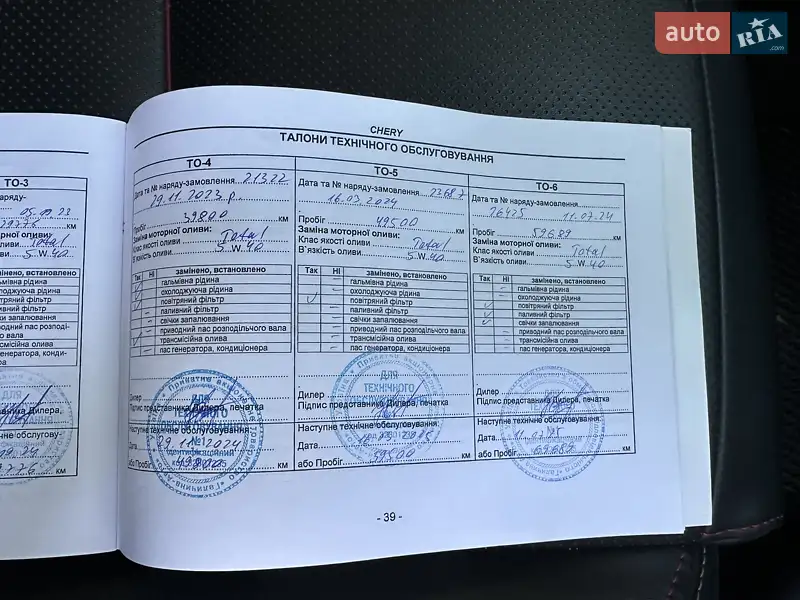 auto RIA .com
CHERY
ТАЛОНИ ТЕХНІЧНОГО ОБСЛУГОВУВАННЯ
ТО-3
05.09.23
29776 км
моторної оливи:
оливи Total
оливи 5 W 40
замінено, встановлено
гальмівна рідина
охолоджуюча рідина
повітряний фільтр
паливний фільтр
свічки запалювання
км
ТО-4
Дата та № наряду-замовлення 21322
29.11.2023 р.
Пробіг 39800 км
Заміна моторної оливи:
Клас якості оливи Total
В'язкість оливи 5 W 40
Так Ні замінено, встановлено
гальмівна рідина
охолоджуюча рідина
повітряний фільтр
паливний фільтр
свічки запалювання
приводний пас розподільчого вала
трансмісійна олива
пас генератора, кондиціонера
Дилер
Підпис представника Дилера, печатка
Наступне технічне обслуговування:
Дата 29.11.2024
або Пробіг 49800 км
ТО-5
Дата та № наряду-замовлення 23687
16.03.2024
Пробіг 49500 км
Заміна моторної оливи:
Клас якості оливи Total
В'язкість оливи 5 W 40
Так Ні замінено, встановлено
гальмівна рідина
охолоджуюча рідина
повітряний фільтр
паливний фільтр
свічки запалювання
приводний пас розподільчого вала
трансмісійна олива
пас генератора, кондиціонера
ДЛЯ
ТЕХНІЧНОГО
Дилер
Підпис представника Дилера, печатка
Наступне технічне обслуговування:
Дата
або Пробіг 59500 км
ТО-6
Дата та № наряду-замовлення
26425 11.07.24
Пробіг 59689 км
Заміна моторної оливи:
Клас якості оливи Total
В'язкість оливи 5 W 40
Так Ні замінено, встановлено
гальмівна рідина
охолоджуюча рідина
повітряний фільтр
паливний фільтр
свічки запалювання
приводний пас розподільчого вала
трансмісійна олива
пас генератора, кондиціонера
Дилер
Підпис представника Дилера, печатка
Наступне технічне обслуговування:
Дата
або Пробіг 69689 км
- 39 -